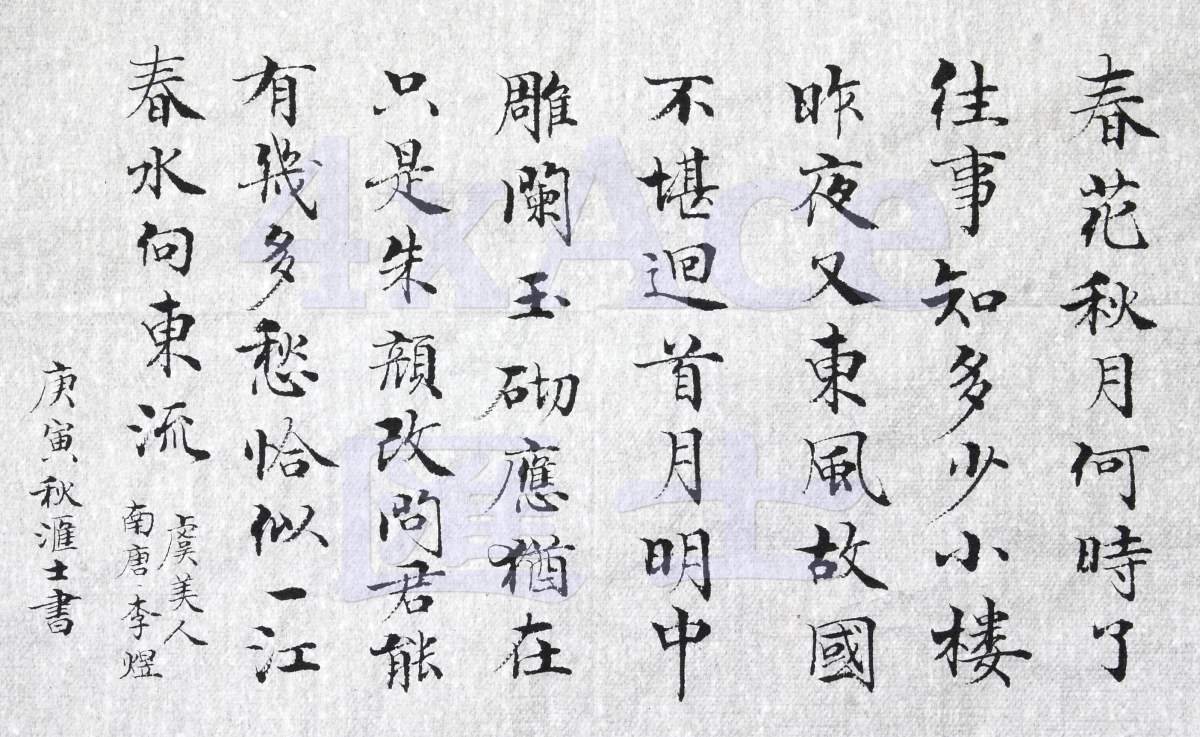 春花秋月何時了
往事知多少小楼
昨夜又東風故國
不堪迴首月明中
雕闌玉砌應猶在
只是朱顔改問君能
有幾多愁恰似一江
春水向東流
虞美人
南唐李煜
庚寅秋滙士書
4xAce
匯士